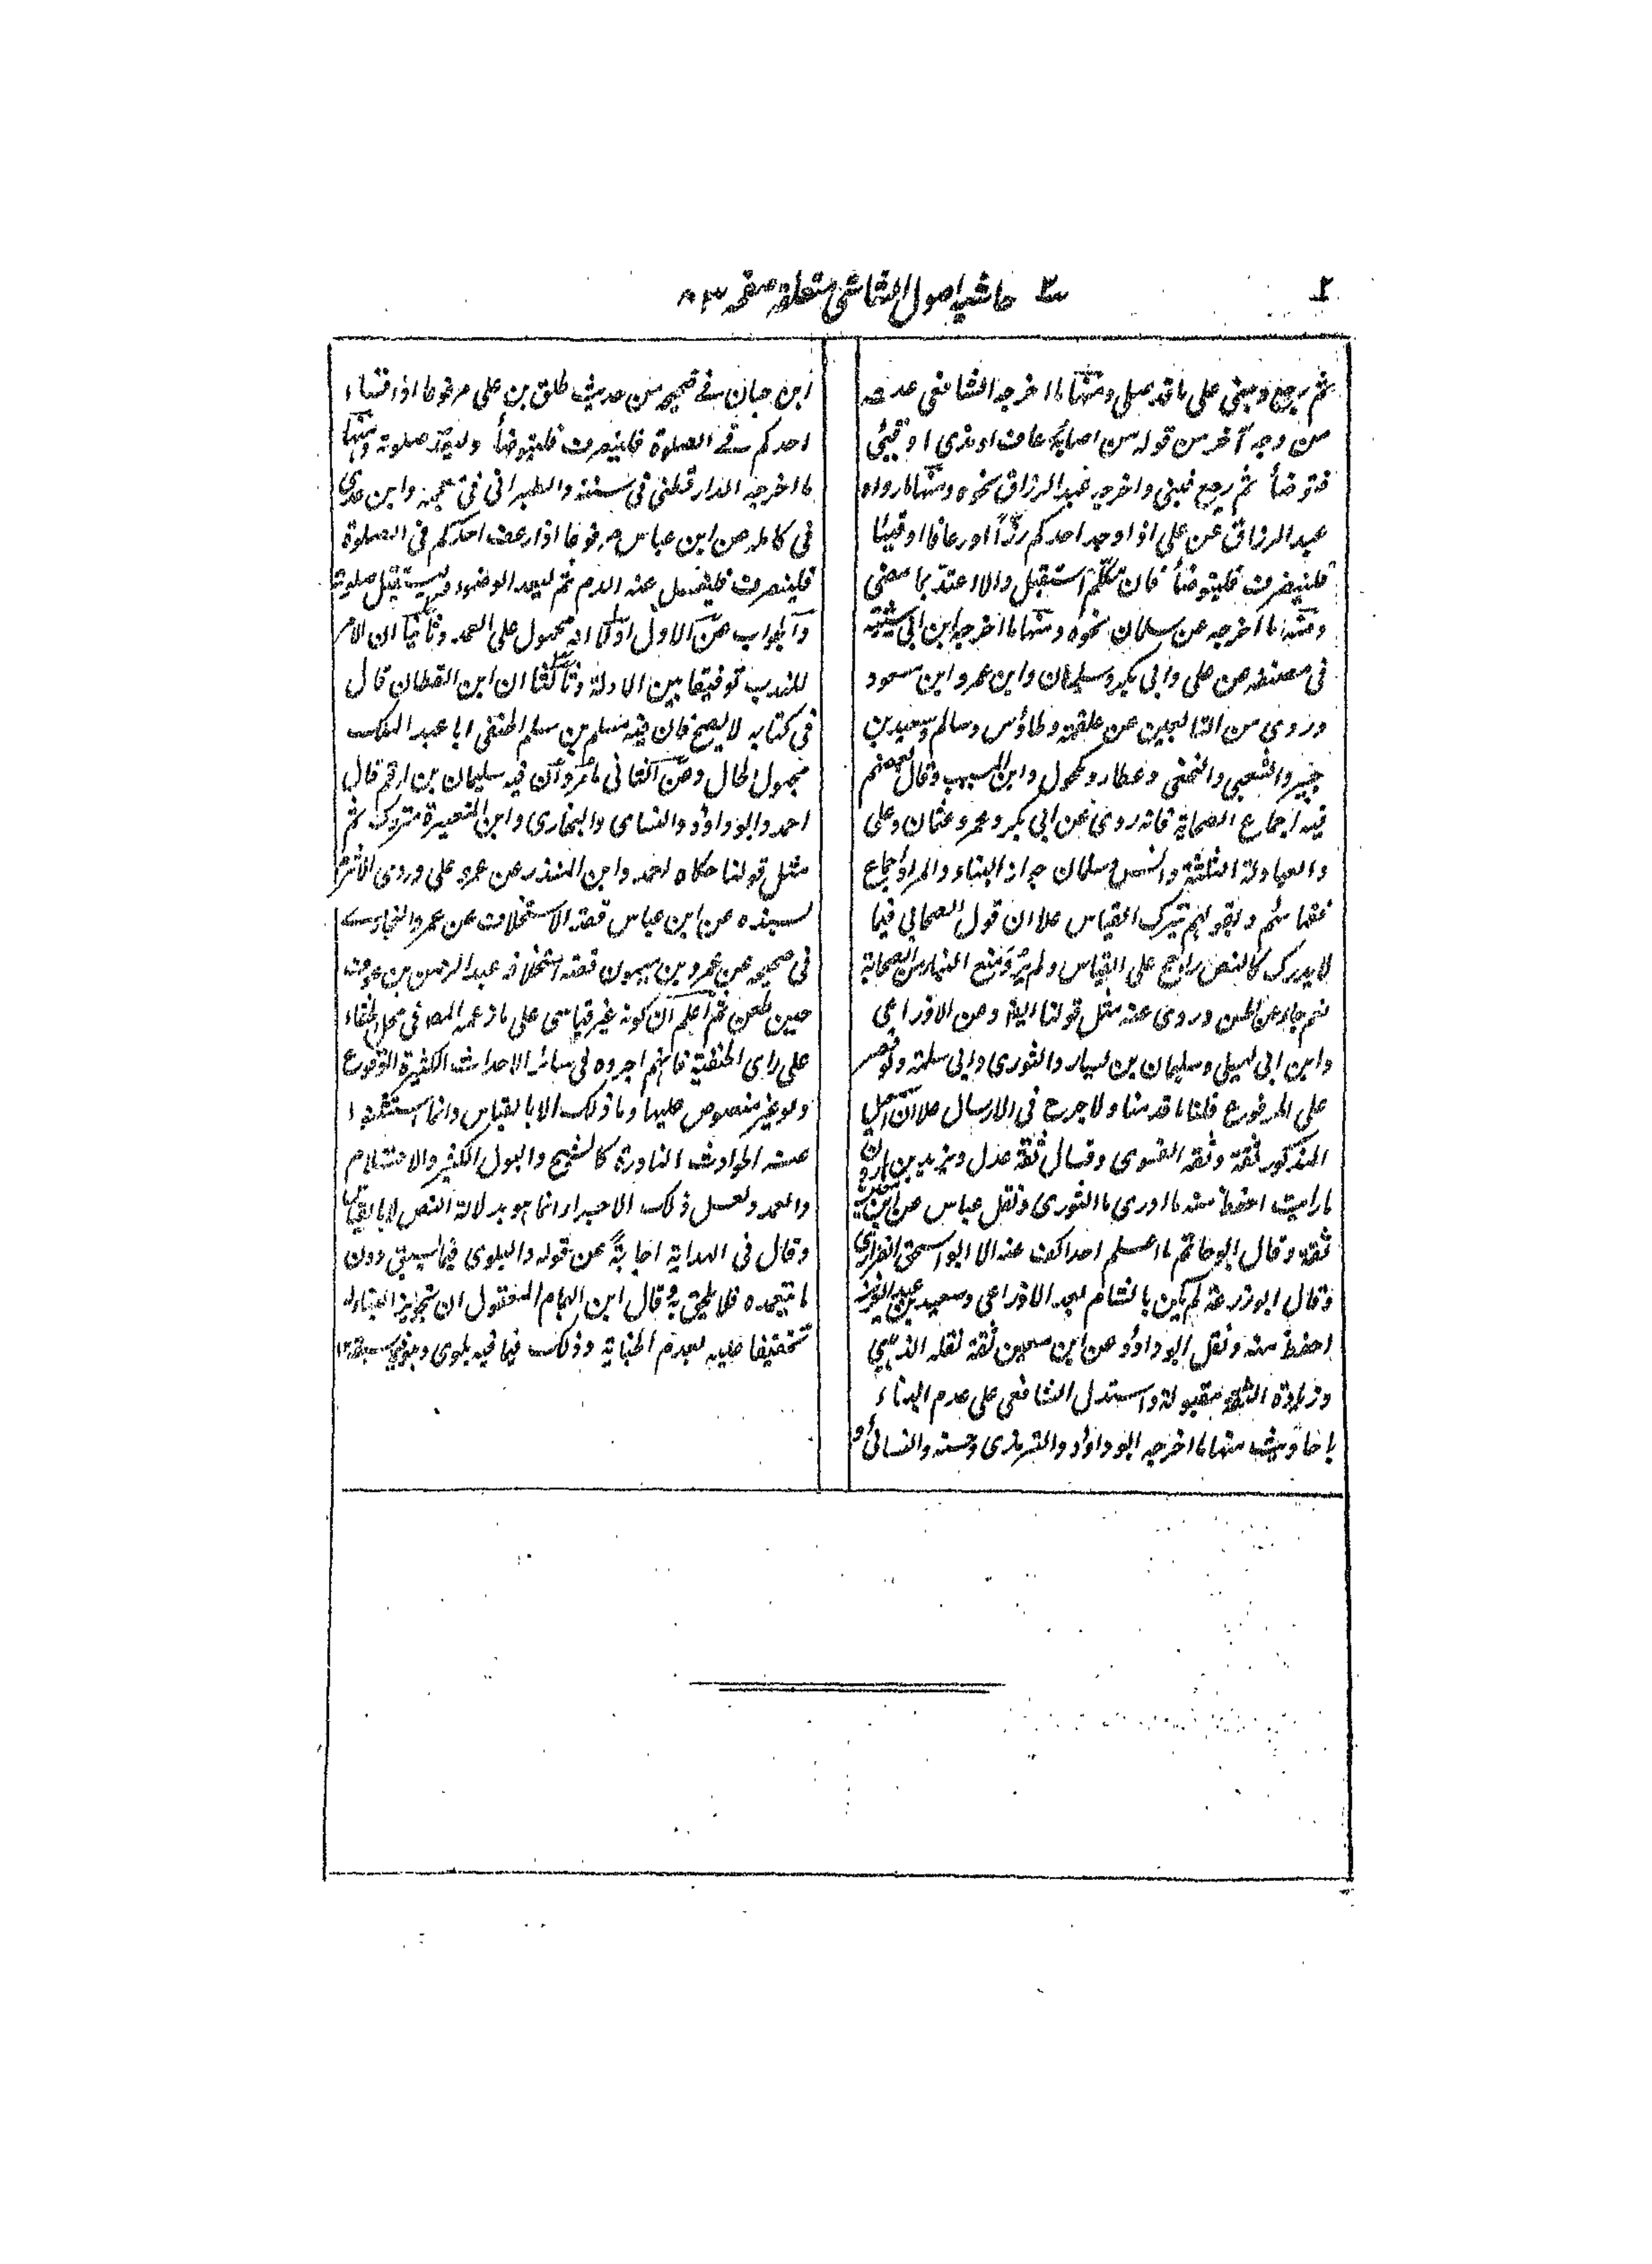 ٢
حاشیہ اصول الشاشی متعلقہ صفحہ ٨٣
ثم يرجع ويبنى على ما قد صلى ومنها ما اخرجه الشافعى عنه
من وجه آخر من قوله من اصابه رعاف او مذى او قيئ
فتوضأ ثم رجع فبنى واخرجه عبد الرزاق نحوه ومنها ما رواه
عبد الرزاق عن على اذا وجد احدكم رزّاً او رعافا او قيئا
فلينصرف فليتوضأ فان تكلم استقبل والا اعتد بما مضى
ومنها ما اخرجه عن سلمان نحوه ومنها ما اخرجه ابن ابى شيبة
فى مصنفه عن على وابى بكر وسليمان وابن عمر وابن مسعود
وروى من التابعين عن علقمة وطاؤس وسالم وسعيد بن
جبير والشعبى والنخعى وعطاء ومكحول وابن المسيب وقال بعضهم
فيه اجماع الصحابة فانه روى عن ابى بكر وعمر وعثمان وعلى
والعبادلة الثلثة وانس وسلمان جواز البناء والمراد اجماع
فقهائهم وبقولهم يترك القياس علا ان قول الصحابى فيما
لا يدرك كالنص راجح على القياس ولم يرو منع البناء من الصحابة
نعم جاء عن الحسن وروى عنه مثل قولنا ايضا وعن الاوزاعى
وابن ابى ليلى وسليمان بن يسار والثورى وابى سلمة
على المرفوع قلنا ما قدمنا ولا جرح فى الارسال علا ان
المذكور ثقة وثقه الفسوى وقال ثقة عدل ويزيد بن هارون
ما رايت احفظ منه ما ادرى ما الثورى ونقل عباس عن ابن معين
ثقة وقال ابو حاتم ما اعلم احدا اكتب عنه الا ابو اسحق الفزارى
وقال ابو زرعة لم يكن بالشام بعد الاوزاعى وسعيد بن عبد العزيز
احفظ منه ونقل ابو داؤد عن ابن معين ثقة نقله الذهبى
وزيادة الثقة مقبولة واستدل الشافعى على عدم البناء
باحاديث منها ما اخرجه ابو داؤد والترمذى وحسنه والنسائى و
ابن حبان فى صحيحه من حديث طلق بن على مرفوعا اذا فساء
احدكم فى الصلوة فلينصرف فليتوضأ وليعد صلوته ومنها
ما اخرجه الدارقطنى فى سننه والطبرانى فى معجمه وابن عدى
فى كامله عن ابن عباس مرفوعا اذا رعف احدكم فى الصلوة
فلينصرف فليغسل عنه الدم ثم ليعد الوضوء وليستقبل صلوته
والجواب عن الاول اولا انه محمول على العمد وثانيا ان الامر
للندب توفيقا بين الادلة وثالثا ان ابن القطان قال
فى كتابه لا يصح فان فيه مسلم بن سلم الحنفى ابا عبد الملك
مجهول الحال وعن الثانى ما مر وان فيه سليمان بن ارقم قال
احمد وابو داؤد والنسائى والبخارى وابن المغيرة متروك ثم
مثل قولنا حكاه احمد وابن المنذر عن عمر وعلى وروى الاثرم
بسنده عن ابن عباس قصة الاستخلاف عن عمر والبخارى
فى صحيحه عن عمرو بن ميمون قصة استخلافه عبد الرحمن بن عوف
حين طعن ثم اعلم ان كونه غير قياسى على ما زعمه المص فى محل الخفاء
على راى الحنفية فانهم اجروه فى سائر الاحداث الكثيرة الوقوع
وهو غير منصوص عليها وما ذلك الا بالقياس وانما استثنوا
عنه الحوادث النادرة كالشج والبول الكثير والاحتلام
والعمد ولعل ذلك الاجراء انما هو بدلالة النص لا بالقياس
وقال فى الهداية اجابةً عن قوله والبلوى فيما يسبق دون
ما يتعمده فلا يلحق به وقال ابن الهمام المعقول ان تجويز البناء له
تخفيفا عليه لعدم الجناية وذلك فيما فيه بلوى وهو فى سبقه ١٢